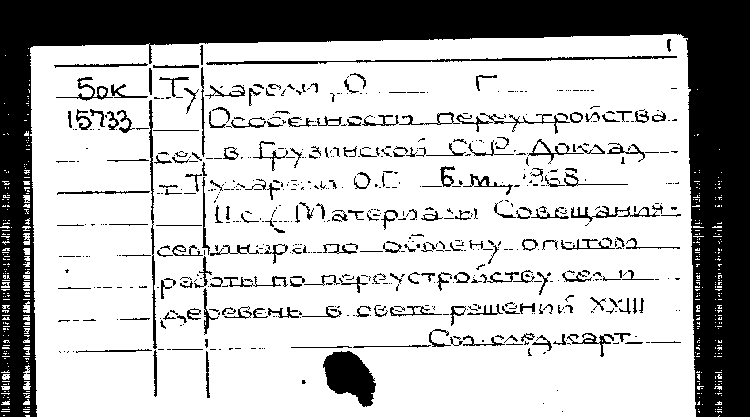 1
Бок Тухарели, О Г
15733 Особенности переустройства
сел в Грузинской ССР. Доклад
т. Тухарели О.Г. Б.м., 1968.
11 с. (Материалы Совещания-
семинара по обмену опытом
работы по переустройству сел и
деревень в свете решений XXIII
См. след. карт.